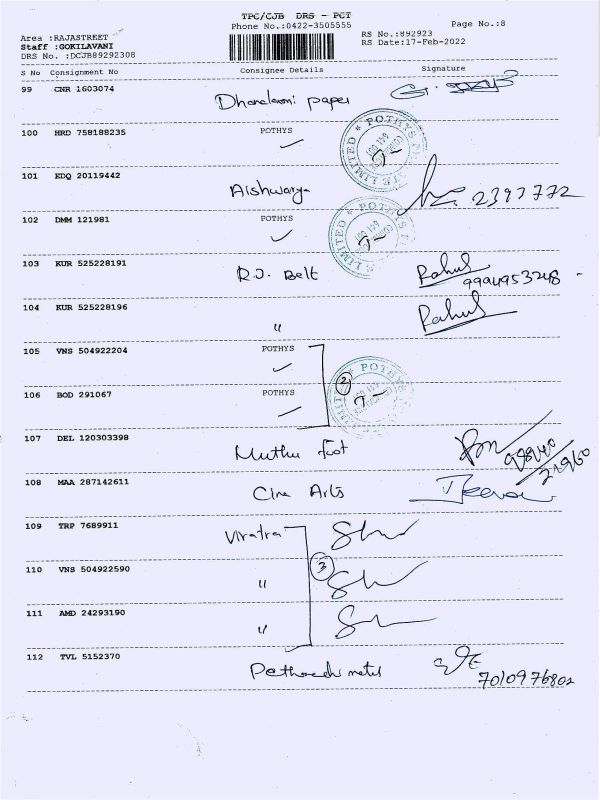 TPC/CJB DRS - PCT
Phone No.:0422-3505555
Page No.:8
Area :RAJASTREET
Staff :GOKILAVANI
DRS No. :DCJB89292308
RS No.:892923
RS Date:17-Feb-2022
S No Consignment No Consignee Details Signature
99 CNR 1603074 Dhanalaxmi paper
100 HRD 758188235 POTHYS
POTHYS
LIMITED
101 EDQ 20119442 Aishwarya 2397772
102 DMM 121981 POTHYS
POTHYS
LIMITED
103 KUR 525228191 R.J. Belt Rahul
9994953248
104 KUR 525228196 " Rahul
105 VNS 504922204 POTHYS
2
POTHYS
106 BOD 291067 POTHYS
107 DEL 120303398 Muthu foot
98940
21960
108 MAA 287142611 Cine Arts Jeeva
109 TRP 7689911 Viratra
110 VNS 504922590 " 3
111 AMD 24293190 "
112 TVL 5152370
7010976802